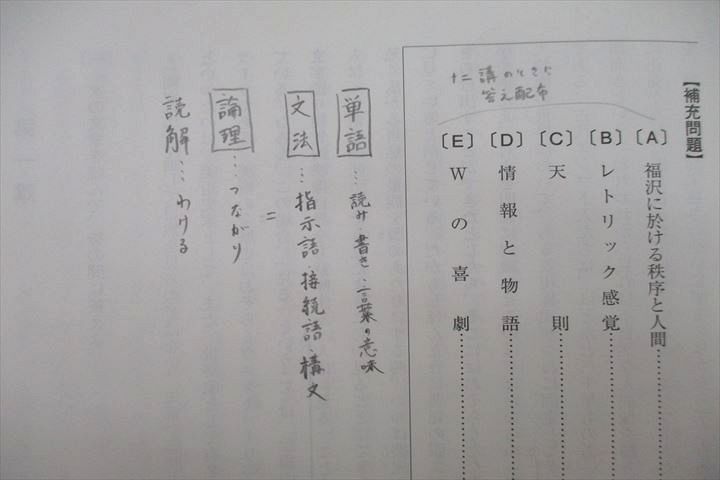 【補充問題】
〔A〕福沢に於ける秩序と人間……………
〔B〕レトリック感覚……………
〔C〕天則……………
〔D〕情報と物語……………
〔E〕Wの喜劇……………
十二講のときに
答え配布
単語…読み・書き・言葉の意味
文法…指示語・接続語・構文
=
論理…つながり
読解…わける